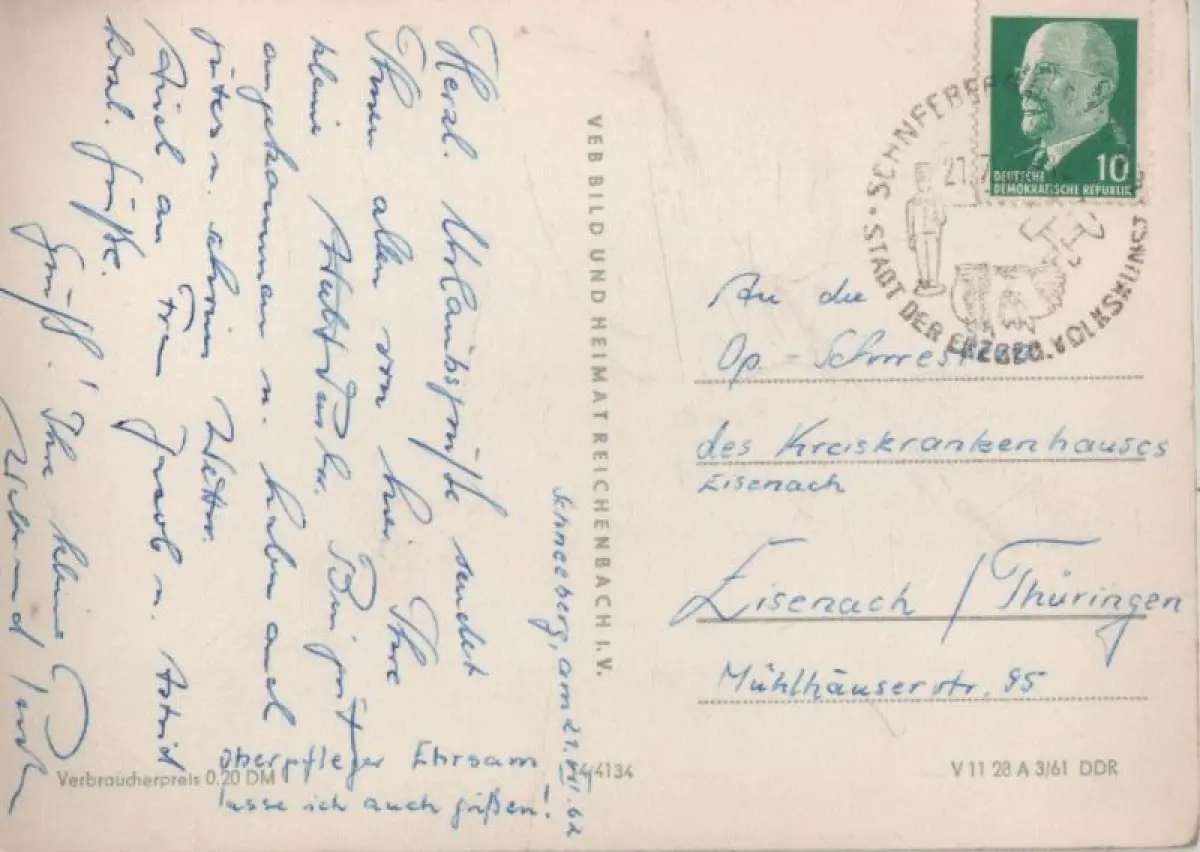 Schneeberg, am 21.VII.62
Herzl. Urlaubsgrüße sendet
Ihnen allen von hier Ihre
kleine Bin gut
angekommen u. haben auch
gutes u. schönes Wetter.
Frau Jacob u. Astrid
herzl. Grüße.
Gruß! Ihre kleine
Oberpfleger Ehrsam
lasse ich auch grüßen!
VEB BILD UND HEIMAT REICHENBACH I. V.
Verbraucherpreis 0.20 DM
4/4134
V 11 28 A 3/61 DDR
10
DEUTSCHE
DEMOKRATISCHE REPUBLIK
SCHNEEBERG
21.7
STADT DER ERZGEB. VOLKSKUNST
An die
Op.-Schwestern
des Kreiskrankenhauses
Eisenach
Eisenach / Thüringen
Mühlhäuserstr. 95